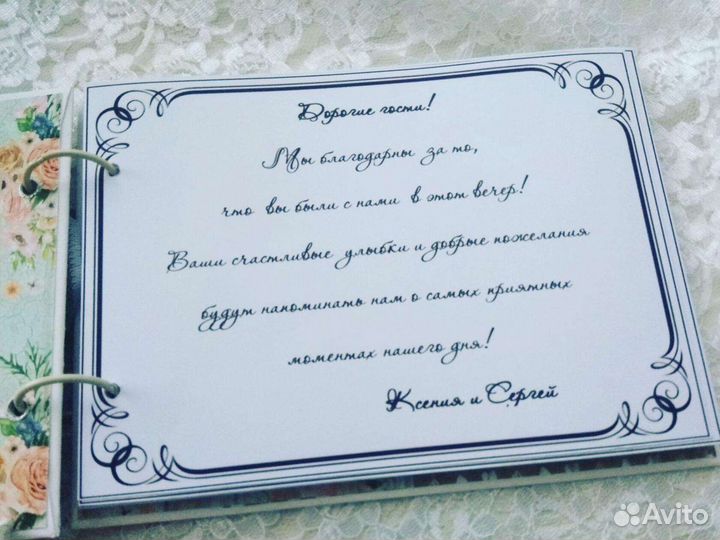 Дорогие гости!
Мы благодарны за то,
что вы были с нами в этот вечер!
Ваши счастливые улыбки и добрые пожелания
будут напоминать нам о самых приятных
моментах нашего дня!
Ксения и Сергей
Avito